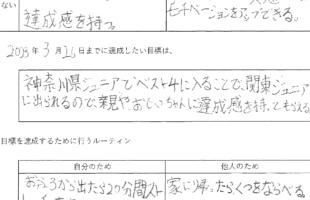 ない
達成感を持つ
モチベーションをアップできる。
2023年3月26日までに達成したい目標は、
神奈川県ジュニアでベスト4に入ることで、関東ジュニア
に出られるので、親やおじいちゃんに達成感を持ってもらえる
目標を達成するために行うルーティン
自分のため 他人のため
おふろから出たら20分間スト 家に帰ったらくつをならべる。